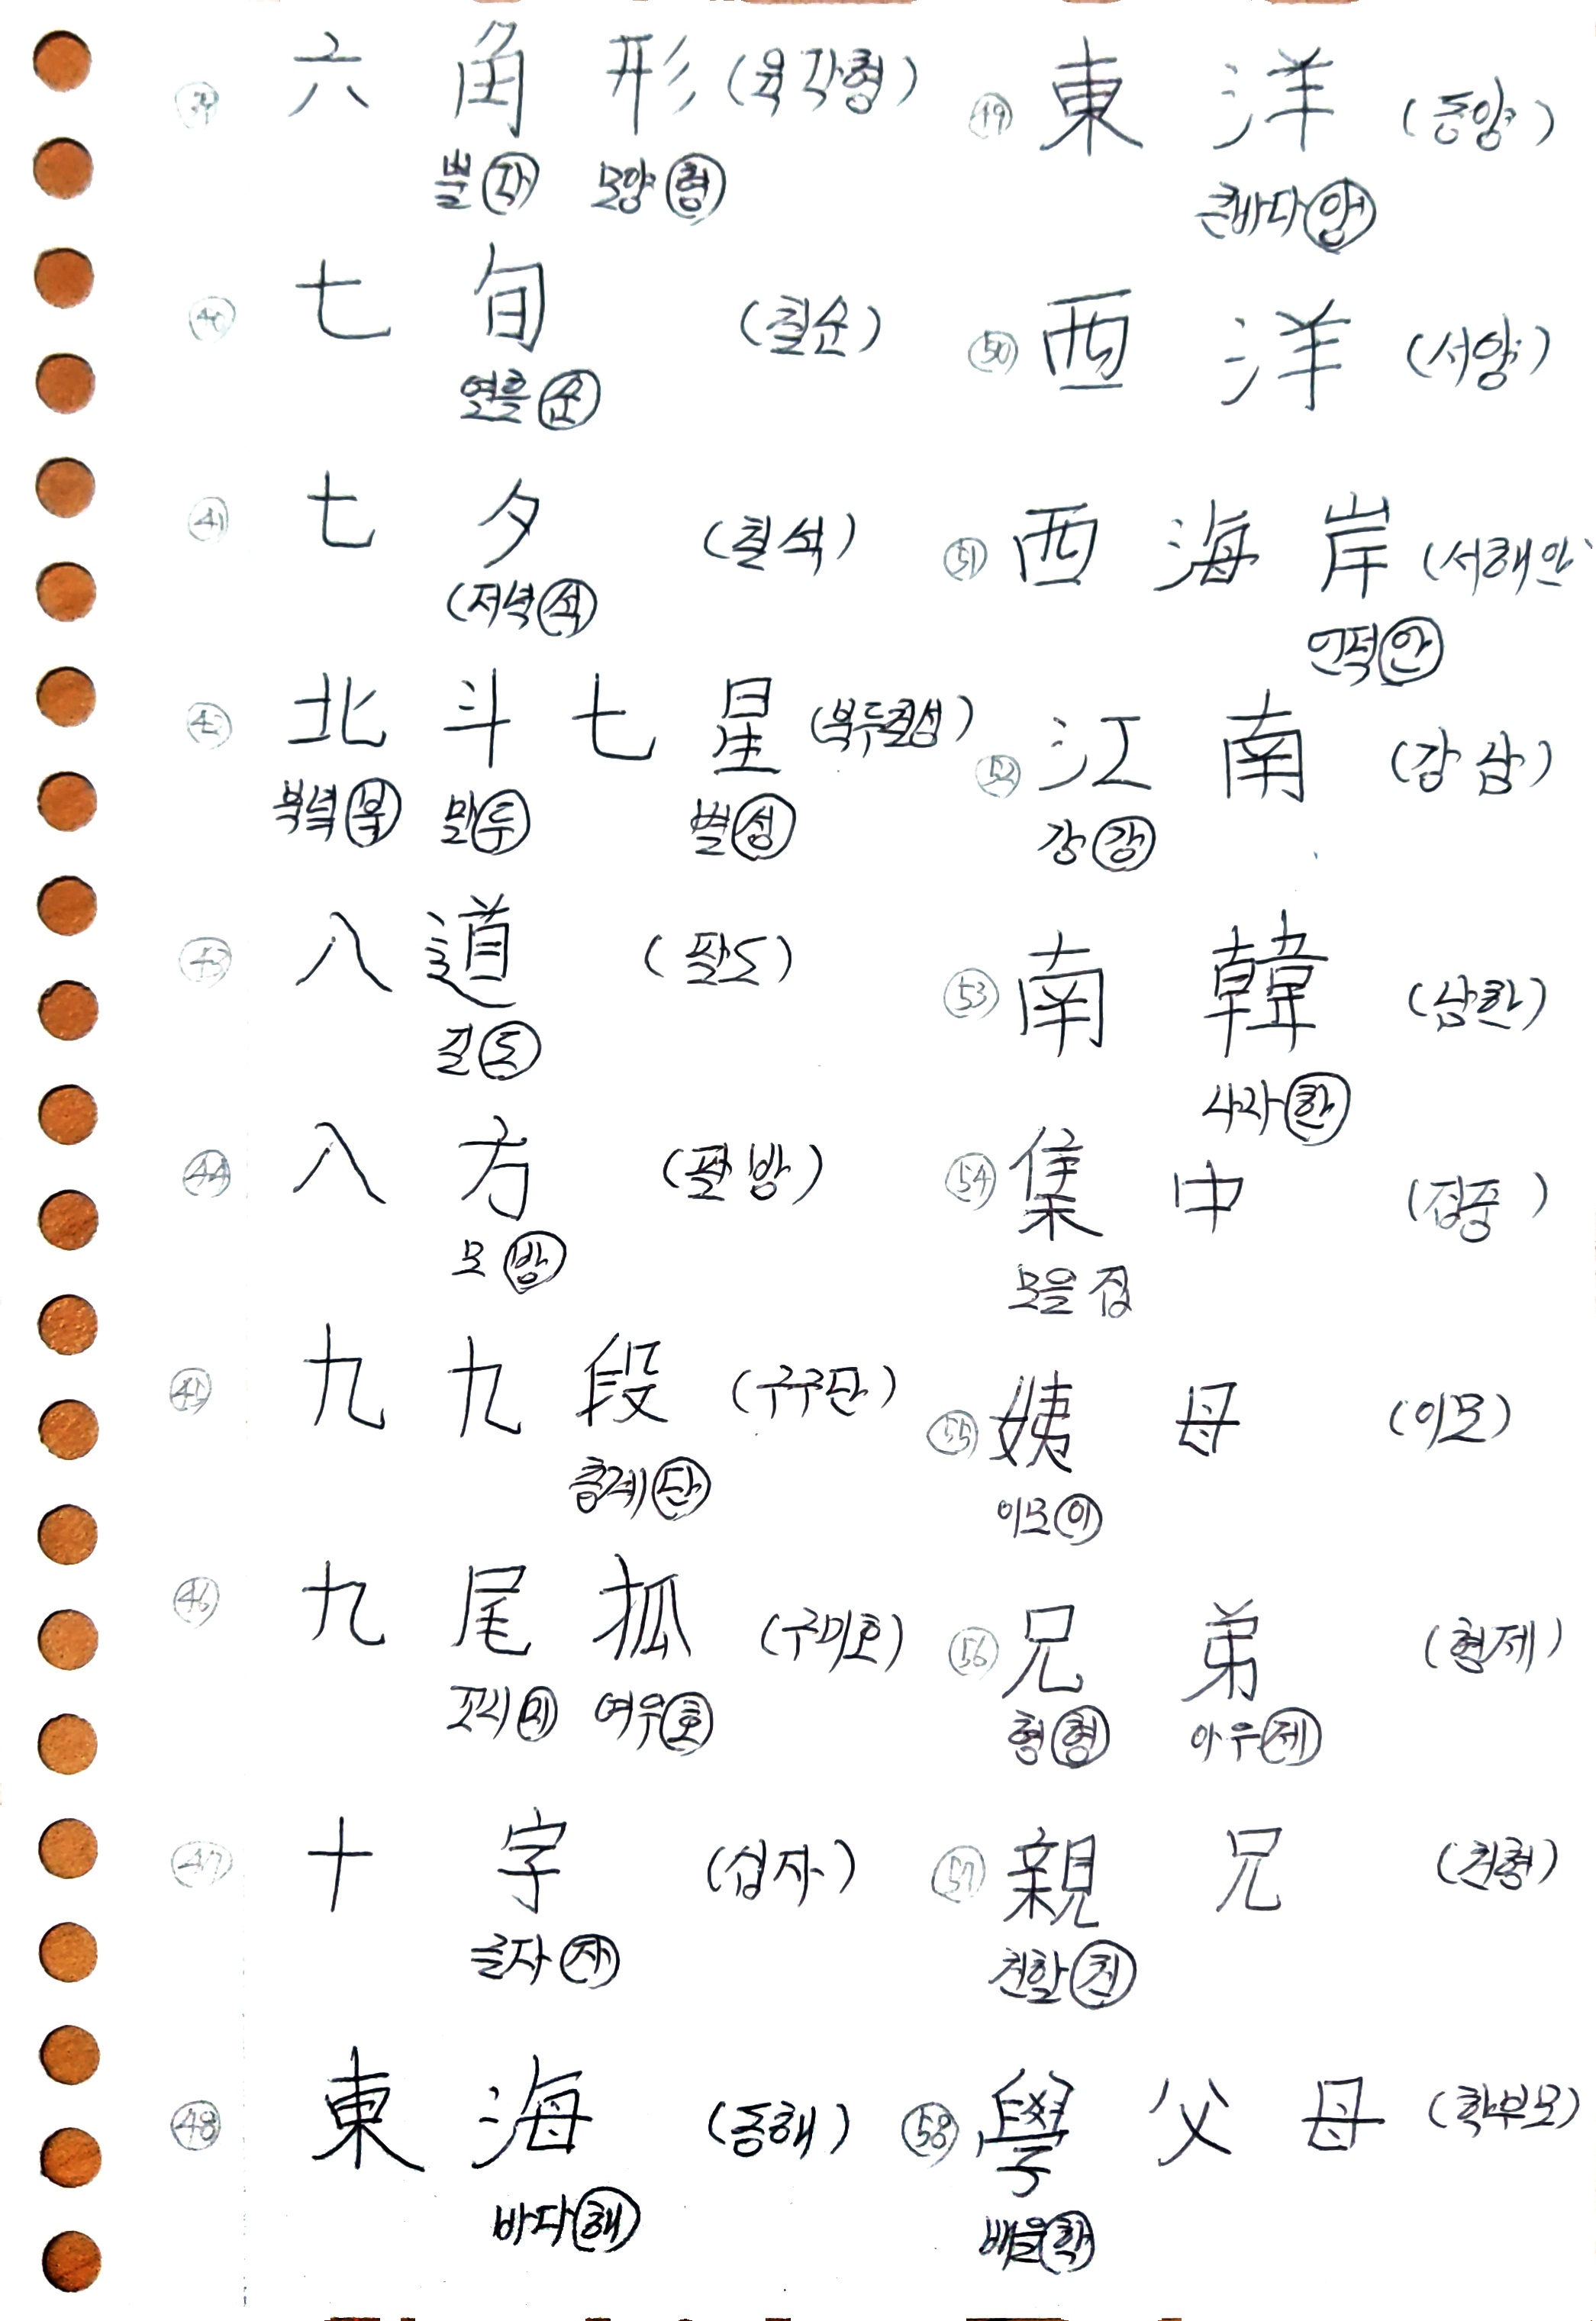 ㊴ 六 角 形 (육각형)
뿔 각 모양 형
㊵ 七 旬 (칠순)
열흘 순
㊶ 七 夕 (칠석)
(저녁 석)
㊷ 北 斗 七 星 (북두칠성)
북녘 북 말 두 별 성
㊸ 八 道 (팔도)
길 도
㊹ 八 方 (팔방)
모 방
㊺ 九 九 段 (구구단)
층계 단
㊻ 九 尾 狐 (구미호)
꼬리 미 여우 호
㊼ 十 字 (십자)
글자 자
㊽ 東 海 (동해)
바다 해
㊾ 東 洋 (동양)
큰바다 양
㊿ 西 洋 (서양)
51 西 海 岸 (서해안
언덕 안
52 江 南 (강남)
강 강
53 南 韓 (남한)
나라 한
54 集 中 (집중)
모을 집
55 姨 母 (이모)
이모 이
56 兄 弟 (형제)
형 형 아우 제
57 親 兄 (친형)
친할 친
58 學 父 母 (학부모)
배울 학